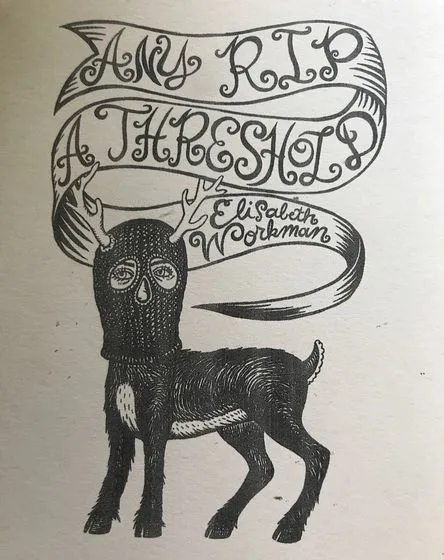 ANY RIP
A THRESHOLD
Elisabeth
Workman